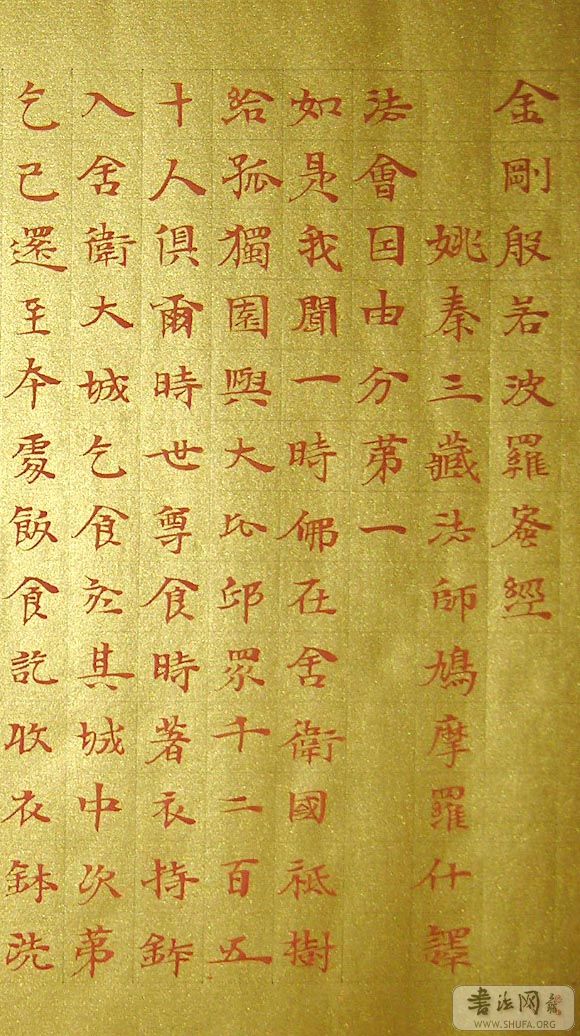 金剛般若波羅蜜經
姚秦三藏法師鳩摩羅什譯
法會因由分第一
如是我聞一時佛在舍衛國祇樹
給孤獨園與大比邱眾千二百五
十人俱爾時世尊食時著衣持鉢
入舍衛大城乞食於其城中次第
乞已還至本處飯食訖收衣鉢洗
書法网
WWW.SHUFA.ORG